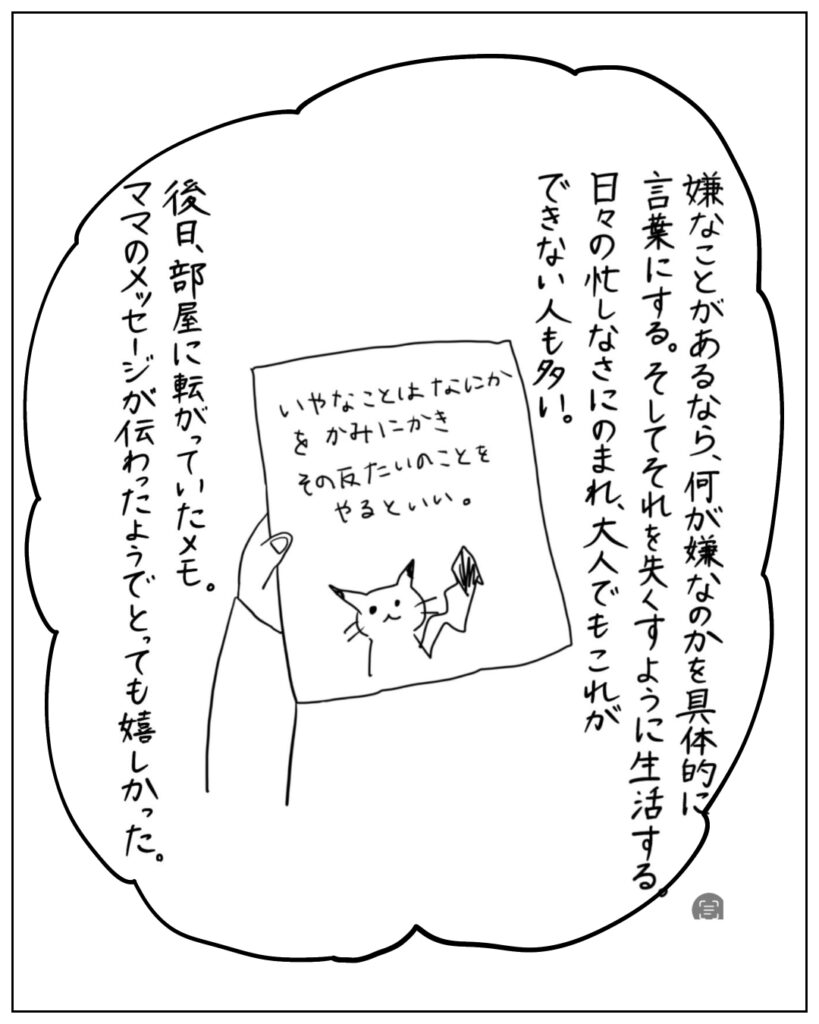 嫌なことがあるなら、何が嫌なのかを具体的に
言葉にする。そしてそれを失くすように生活する。
日々の忙しなさにのまれ、大人でもこれが
できない人も多い。
いやなことはなにか
を かみにかき
その反たいのことを
やるといい。
後日、部屋に転がっていたメモ。
ママのメッセージが伝わったようでとっても嬉しかった。